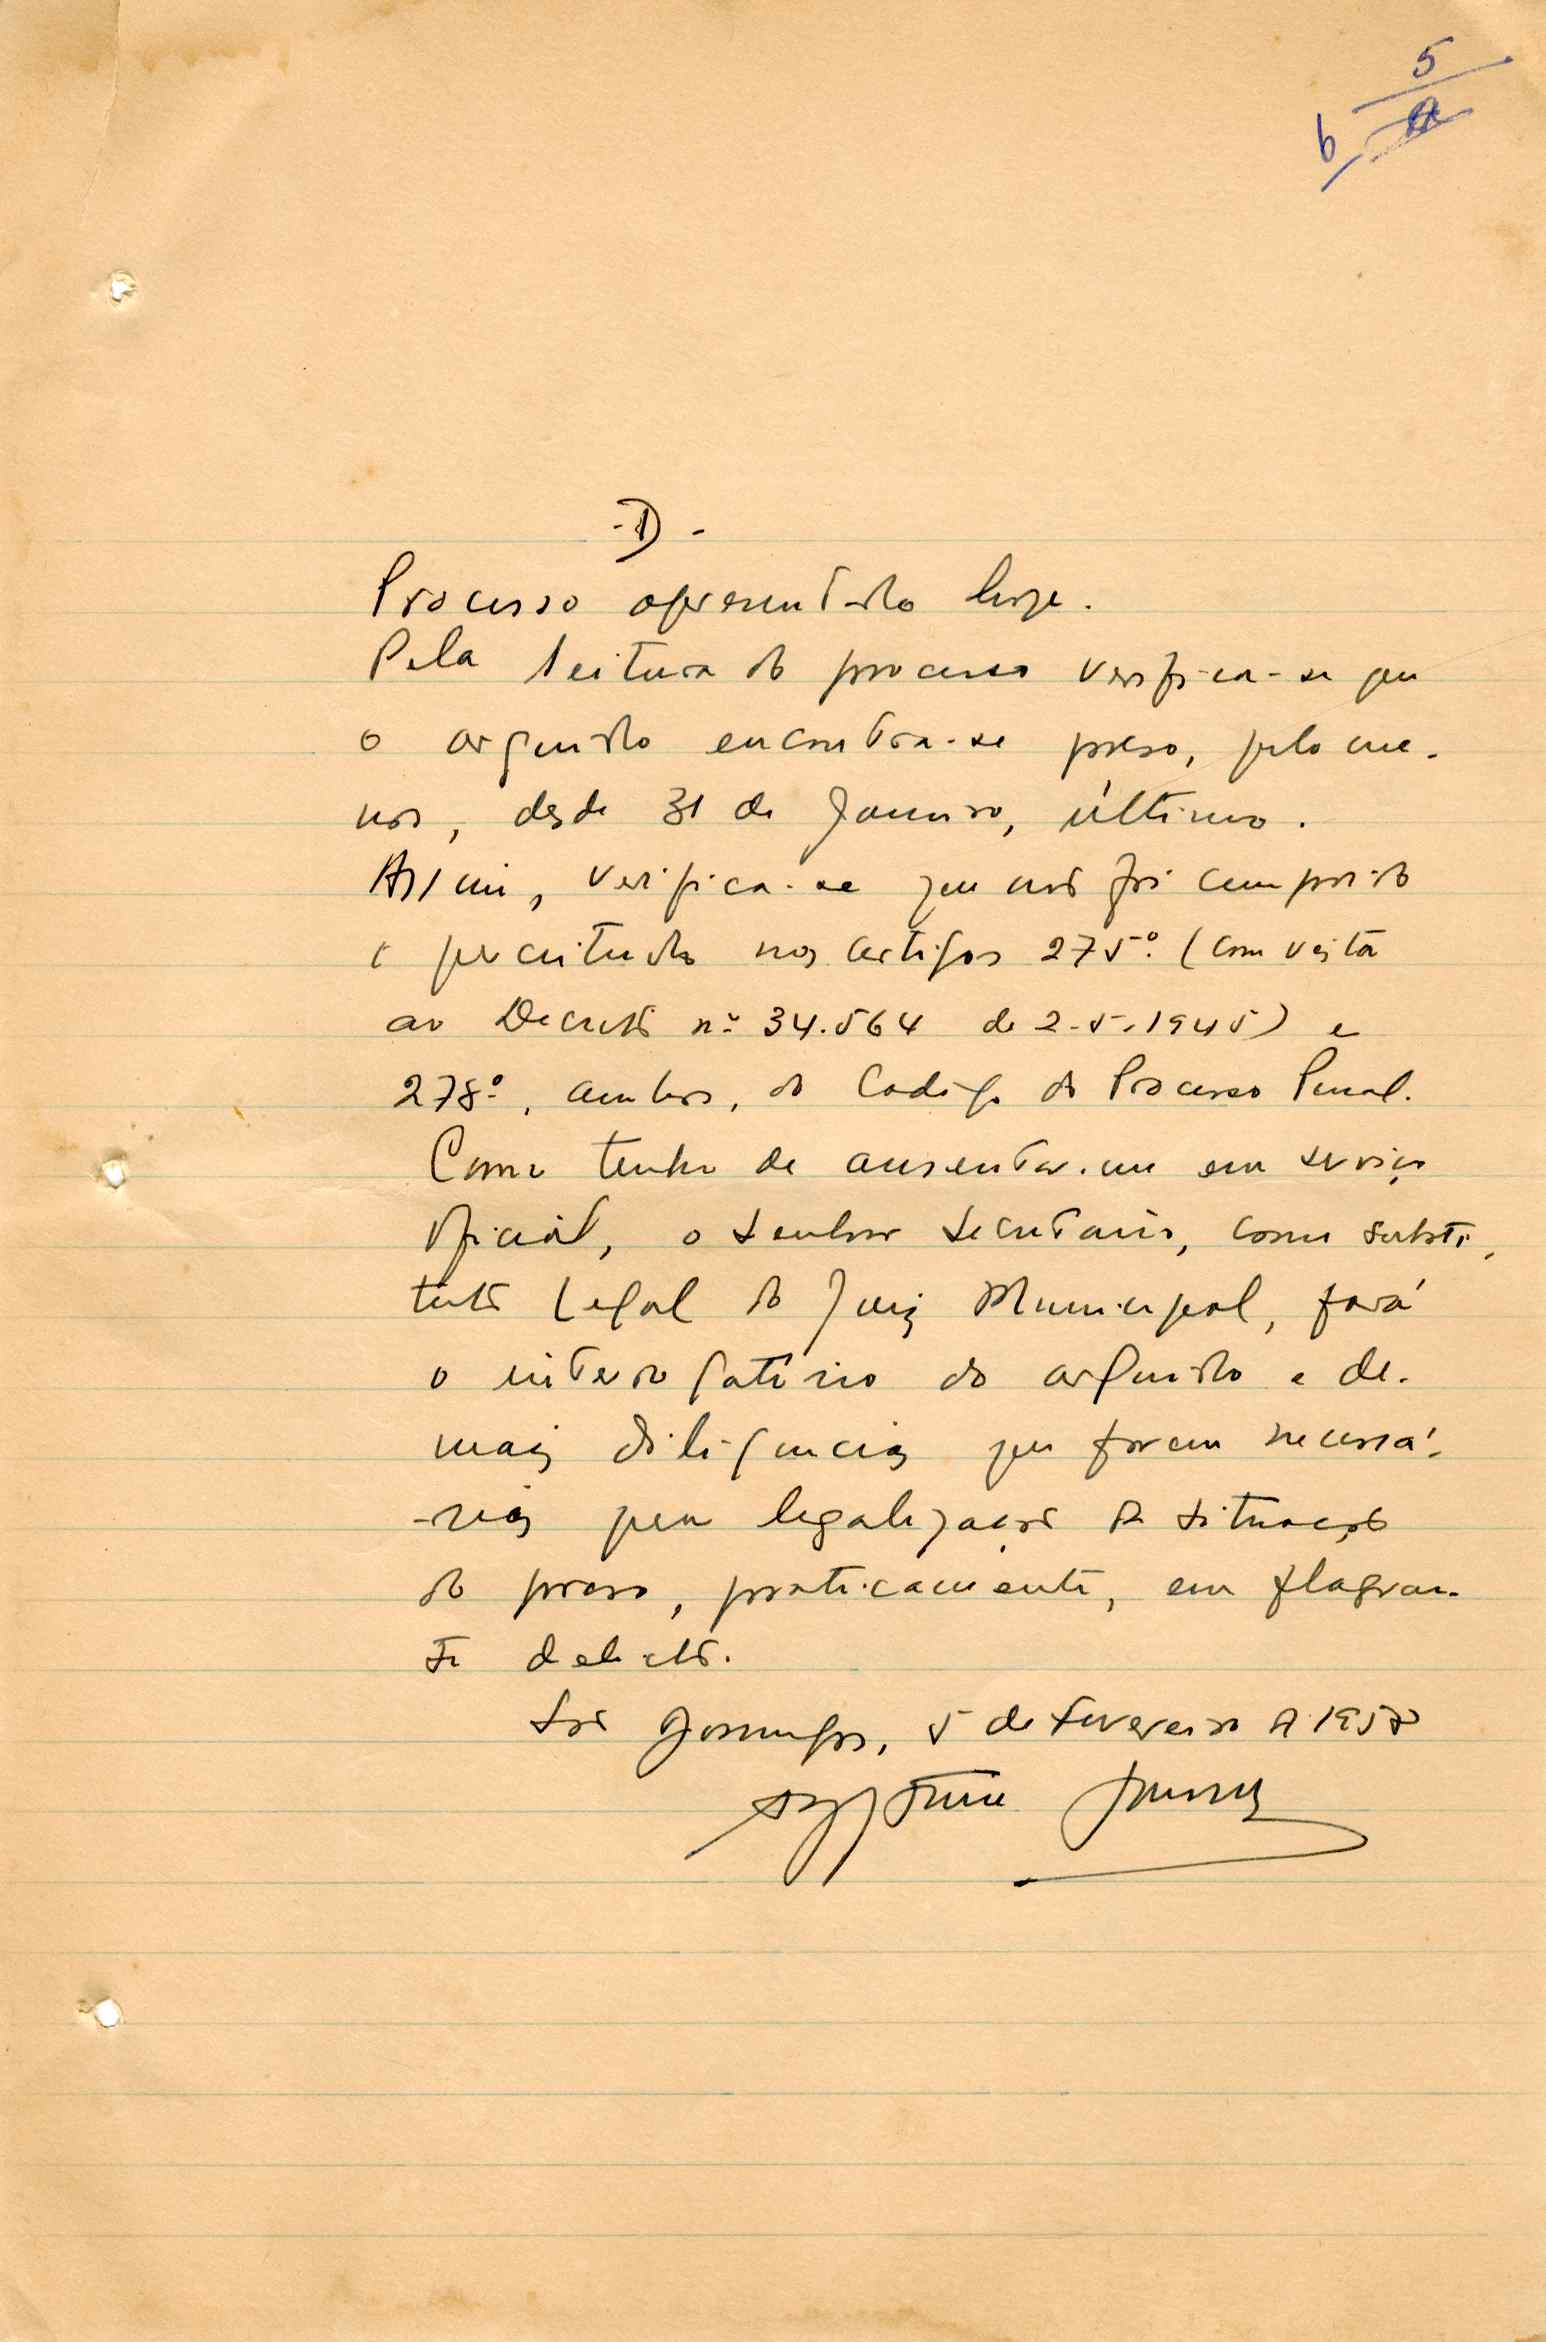 5
6
-D-
Processo apresentado hoje.
Pela leitura do processo verifica-se que
o arguido encontra-se preso, pelo me-
nos, desde 31 de Janeiro, último.
Assim, verifica-se que não foi cumprido
o preceituado nos artigos 275º. (com vista
ao Decreto nº 34.564 de 2-5-1945) e
278º, ambos, do Codigo do Processo Penal.
Como tenho de ausentar-me em serviço
oficial, o senhor secretario, como substi-
tuto legal do Juiz Municipal, fará
o interrogatório do arguido e de-
mais diligencias que forem necessá-
-rias para legalização da situação
do preso, praticamente, em flagran-
te delicto.
São Domingos, 5 de Fevereiro de 1958